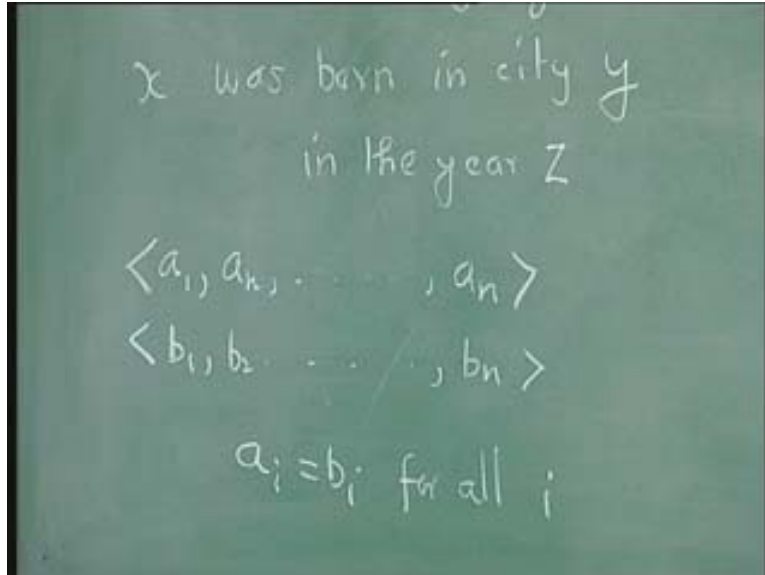 x was born in city y
in the year Z
<a₁, aₙ, . . . . . , aₙ>
<b₁, b₂ . . . . , bₙ>
aᵢ = bᵢ for all i